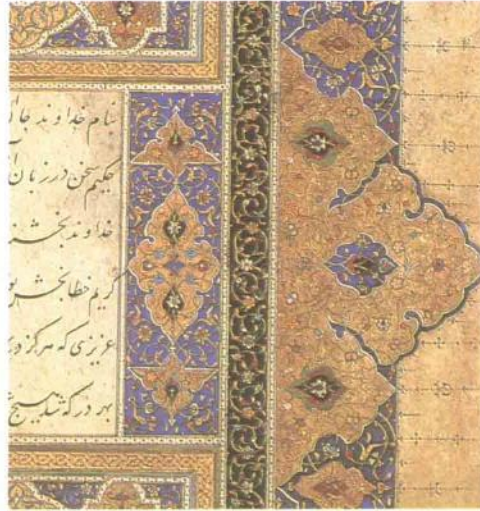 بنام خداوند جان
حکیم سخن در زبان
خداوند بخش
کریم خطا بخش پو
عزیزی که هرکز در
بهر در که شد هیچ